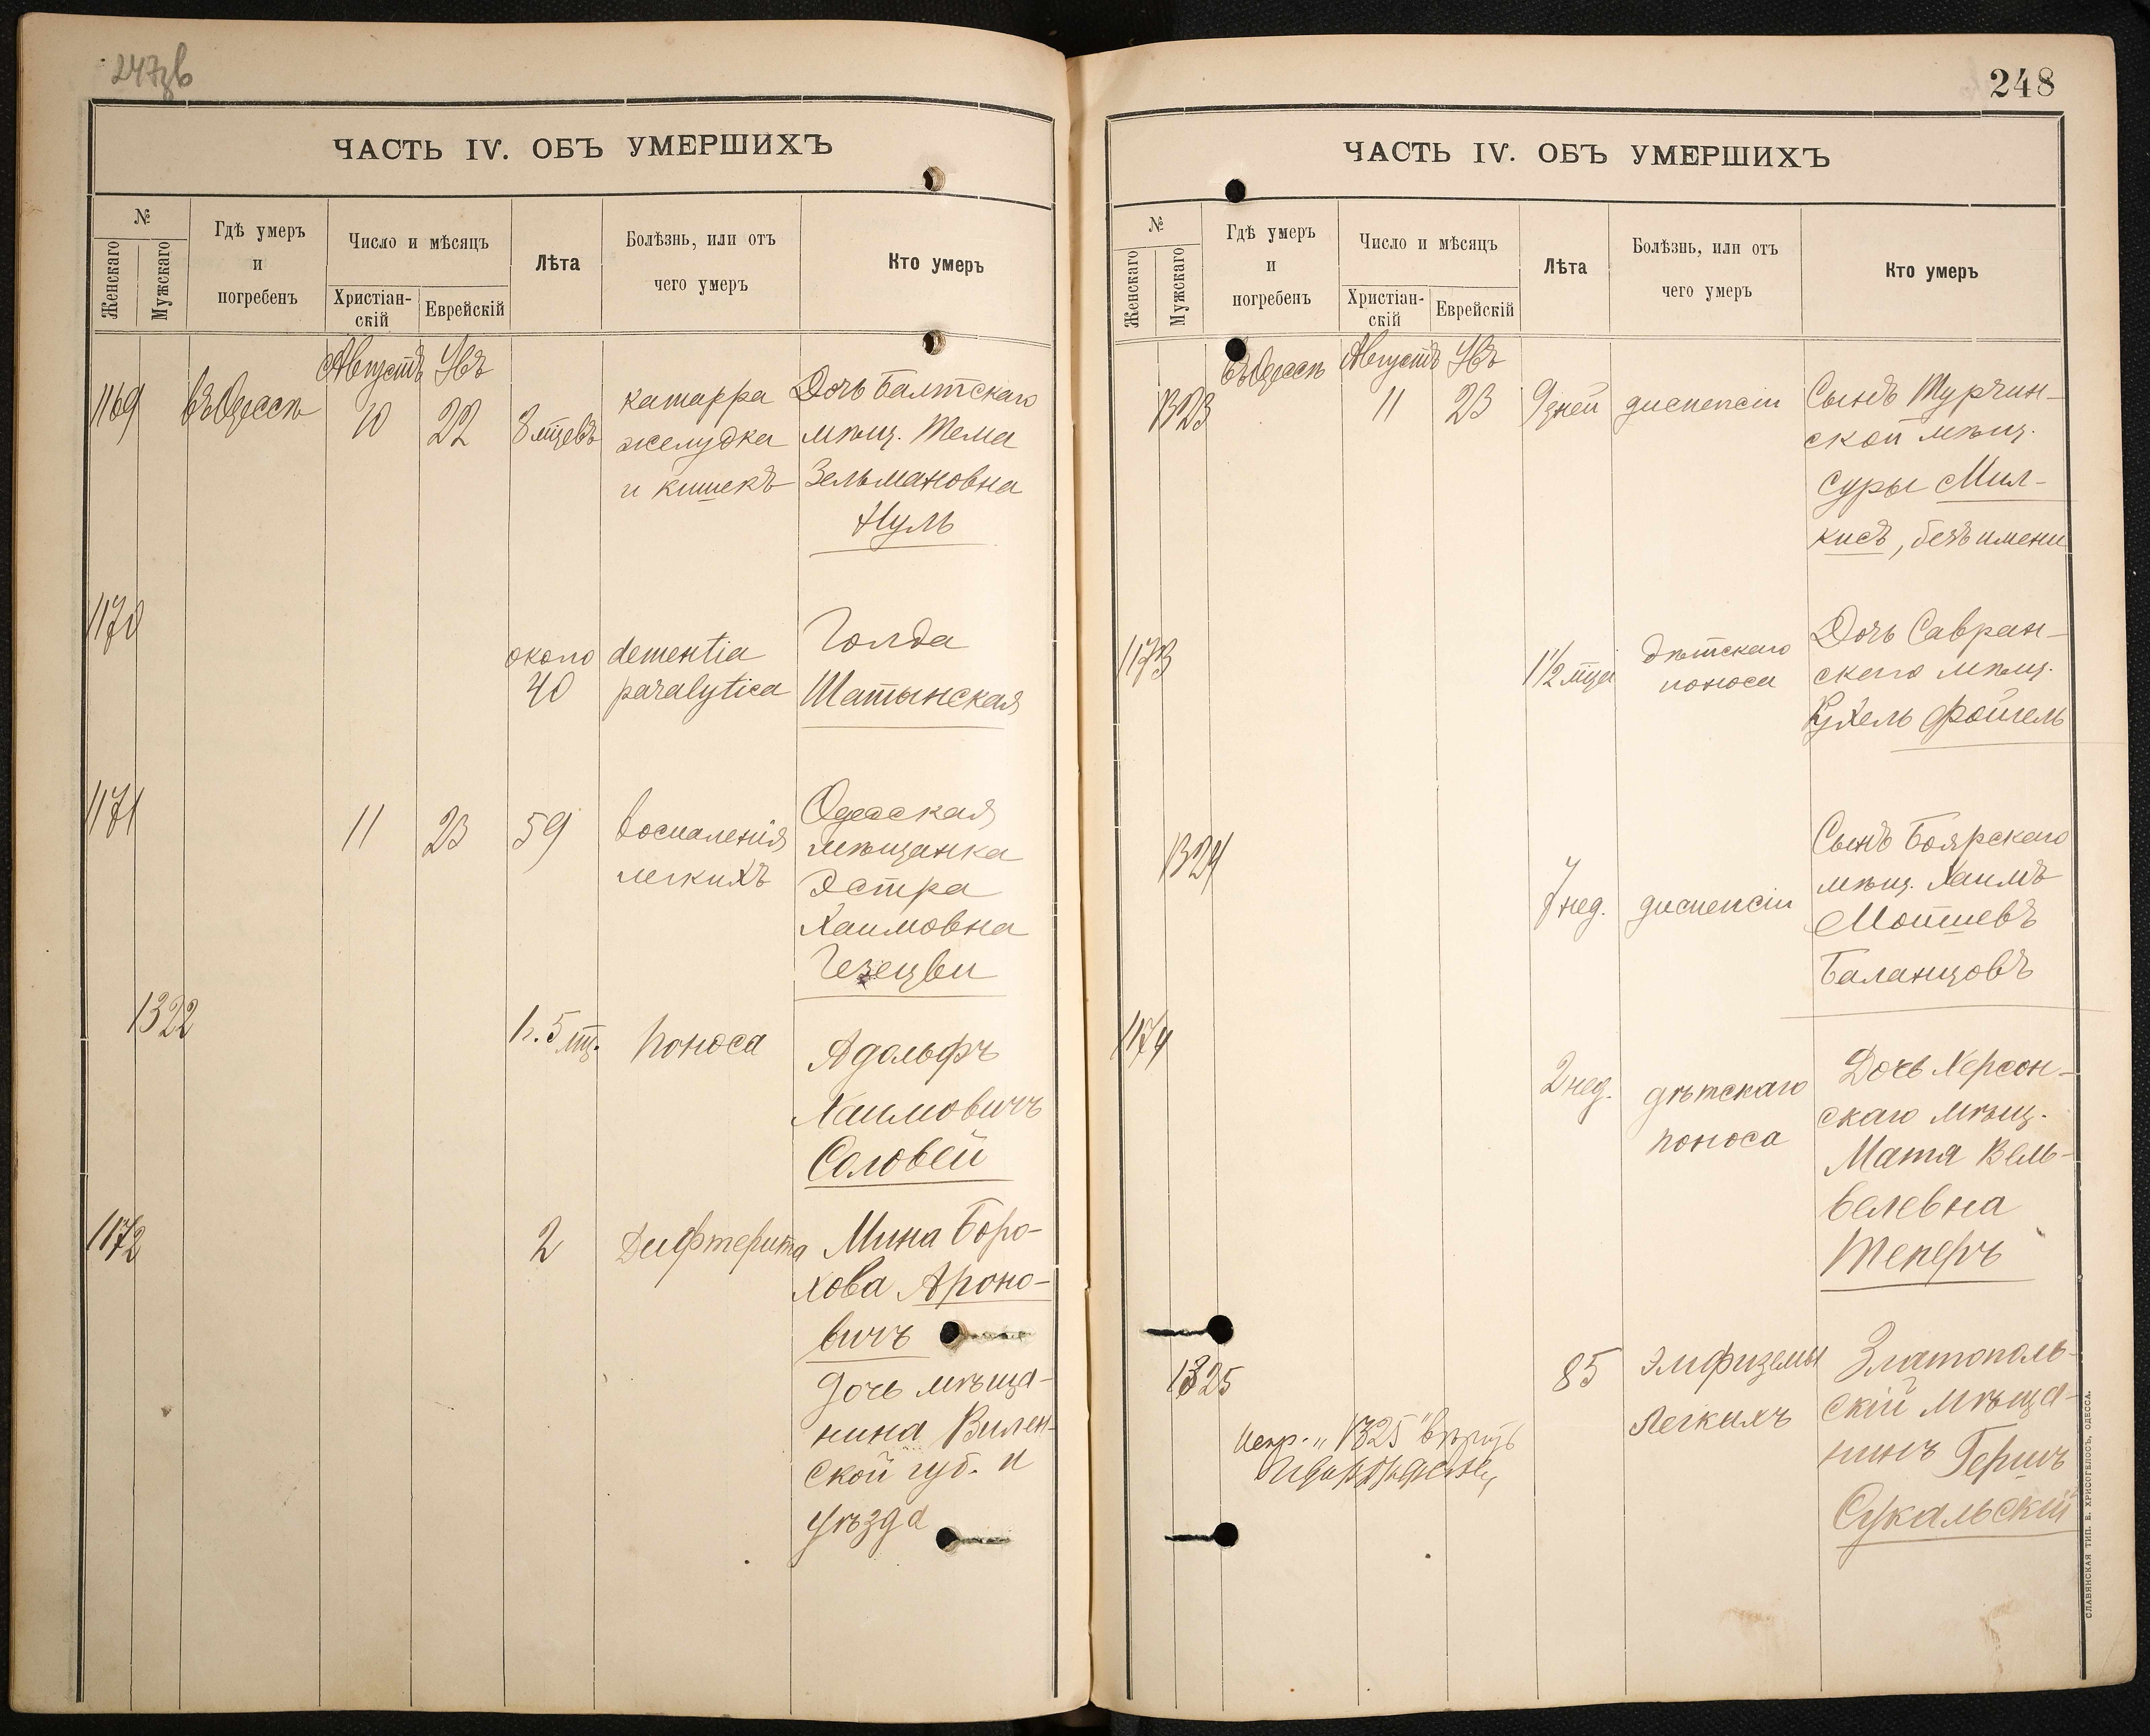 247об
ЧАСТЬ IV. ОБЪ УМЕРШИХЪ
№
Женскаго
Мужскаго
Гдѣ умеръ
и
погребенъ
Число и мѣсяцъ
Христіан-
скій
Еврейскій
Лѣта
Болѣзнь, или отъ
чего умеръ
Кто умеръ
Августъ
1169
въ Одессѣ
10
22
8 мцевъ
катарра
желудка
и кишекъ
Дочь Балтскаго
мѣщ. Тема
Зельмановна
Нуль
1170
около
40
dementia
paralytica
Голда
Шатынская
1171
11
23
59
воспаленія
легкихъ
Одесская
мѣщанка
Эстра
Хаимовна
1322
1 г. 5 мц.
поноса
Адольфъ
Хаимовичъ
Соловей
1172
2
Дифтерита
Мина Боро-
хова Ароно-
вичъ
дочь мѣща-
нина Вилен-
ской губ. и
уѣзда
248
ЧАСТЬ IV. ОБЪ УМЕРШИХЪ
№
Женскаго
Мужскаго
Гдѣ умеръ
и
погребенъ
Число и мѣсяцъ
Христіан-
скій
Еврейскій
Лѣта
Болѣзнь, или отъ
чего умеръ
Кто умеръ
въ Одессѣ
Августъ
1323
11
23
9 дней
диспепсіи
Сынъ Турчин-
ской мѣщ.
Суры Мил-
кисъ, безъ имени
1173
1 1/2 мца
дѣтскаго
поноса
Дочь Савран-
скаго мѣщ.
Рухель Фойгель
1324
7 нед.
диспепсіи
Сынъ Боярскаго
мѣщ. Хаимъ
Мошевъ
Баланцовъ
1174
2 нед.
дѣтскаго
поноса
Дочь Херсон-
скаго мѣщ.
Матя Вель-
велевна
Текеръ
1325
85
Эмфиземы
Легкихъ
Златополь-
скій мѣща-
нинъ Гершъ
Сукальскій
испр. „1325" вѣрить
СЛАВЯНСКАЯ ТИП. Е. ХРИСОГЕЛОСЪ, ОДЕССА.